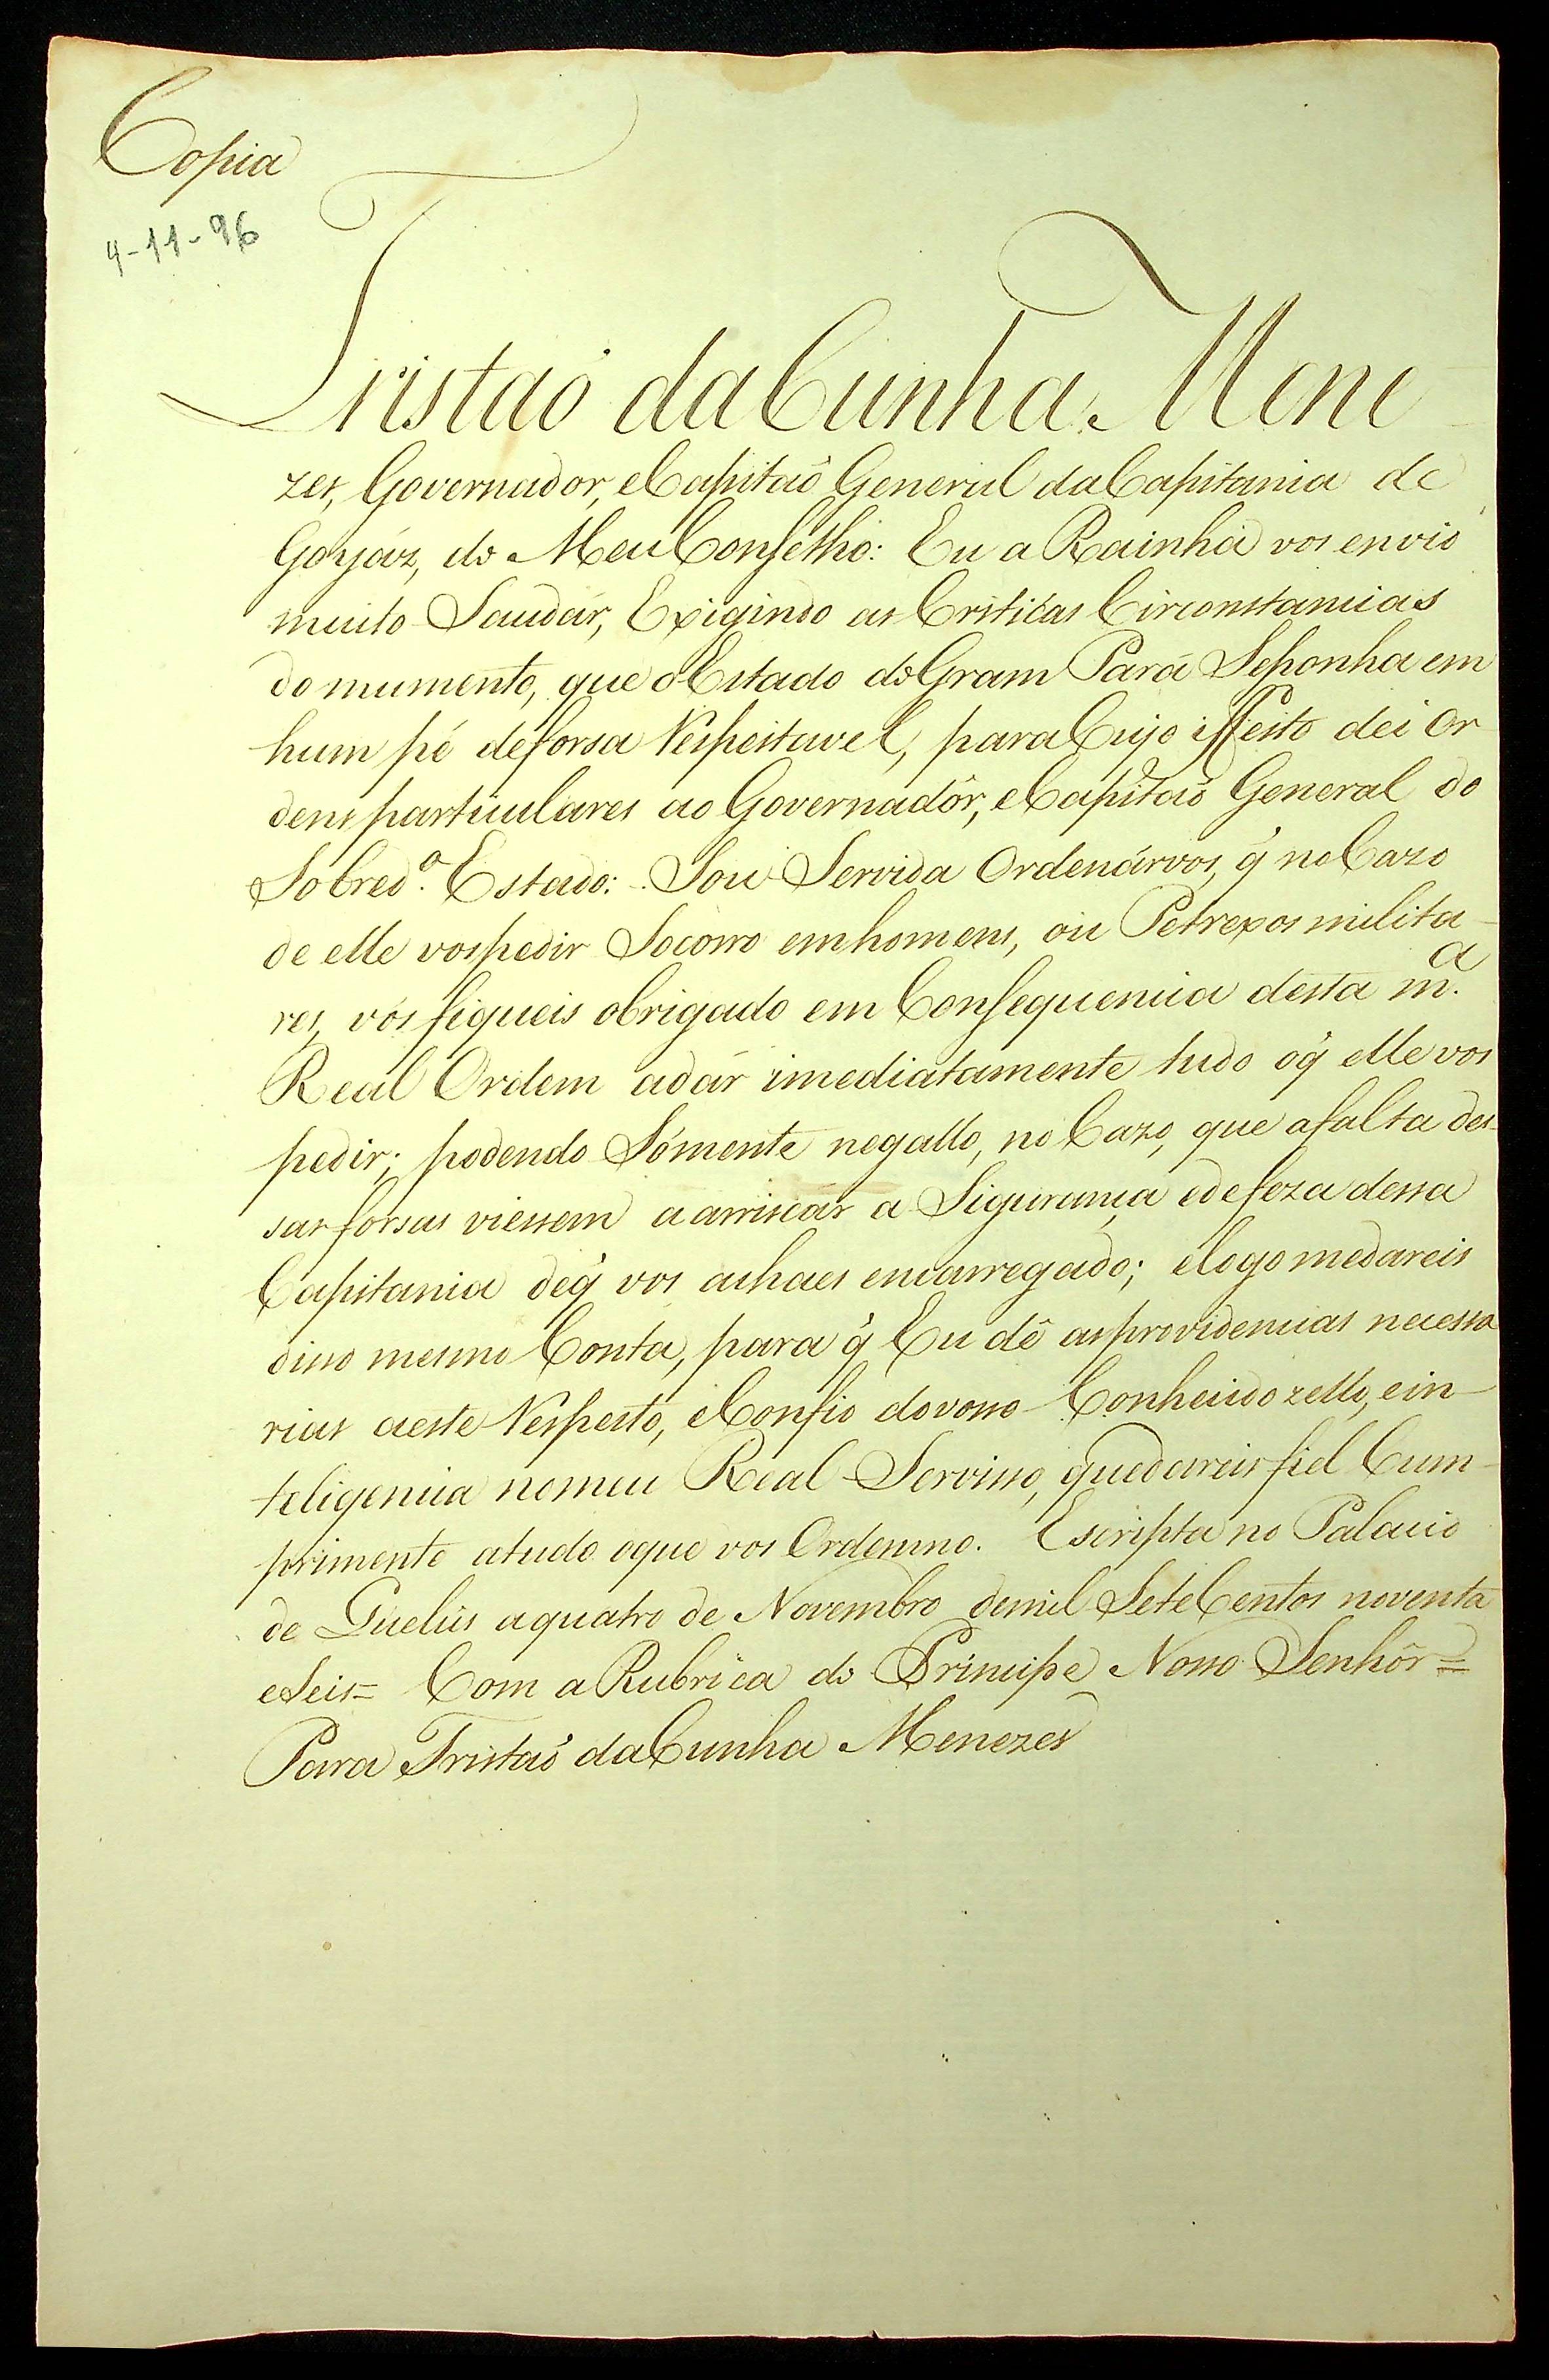 Copia
4-11-96
Tristaõ da Cunha Mene
zes, Governador, e Capitaõ General da Capitania de
Goyáz, do Meu Conselho: Eu a Rainha vos envio
muito Saudár, Exigindo as Criticas Circonstancias
do mumento, que o Estado do Gram Pará Seponha em
hum pé deforsa Respeitavel, para Cujo effeito dei Or
dens particulares ao Governadôr, e Capitaõ General do
Sobred.º Estado: Sou Servida Ordenárvos, q̃ no Cazo
de elle vos pedir Socorro em homens, ou Petrexos milita-
res, vós fiqueis obrigado em Consequencia desta m.ª
Real Ordem adár imediatamente tudo oq̃ elle vos
pedir; podendo Sómente negallo, no Cazo, que afalta des-
sas forsas viessem a arriscár a Sigurança edefeza dessa
Capitania deq̃ vos achaes encarregado; elogo medareis
disso mesmo Conta, para q̃ Eu dê as providencias necessa
rias aeste Respeito, e Confio do vosso Conhecido zello, ein-
teligencia nomeu Real Servisso, quedareis fiel Cum-
primento atudo oque vos Ordenno. Escripta no Palacio
de Quelús aquatro de Novembro demil Sete Centos noventa
eSeis= Com a Rubrica do Principe Nosso Senhôr=
Para Tristaõ da Cunha Menezes